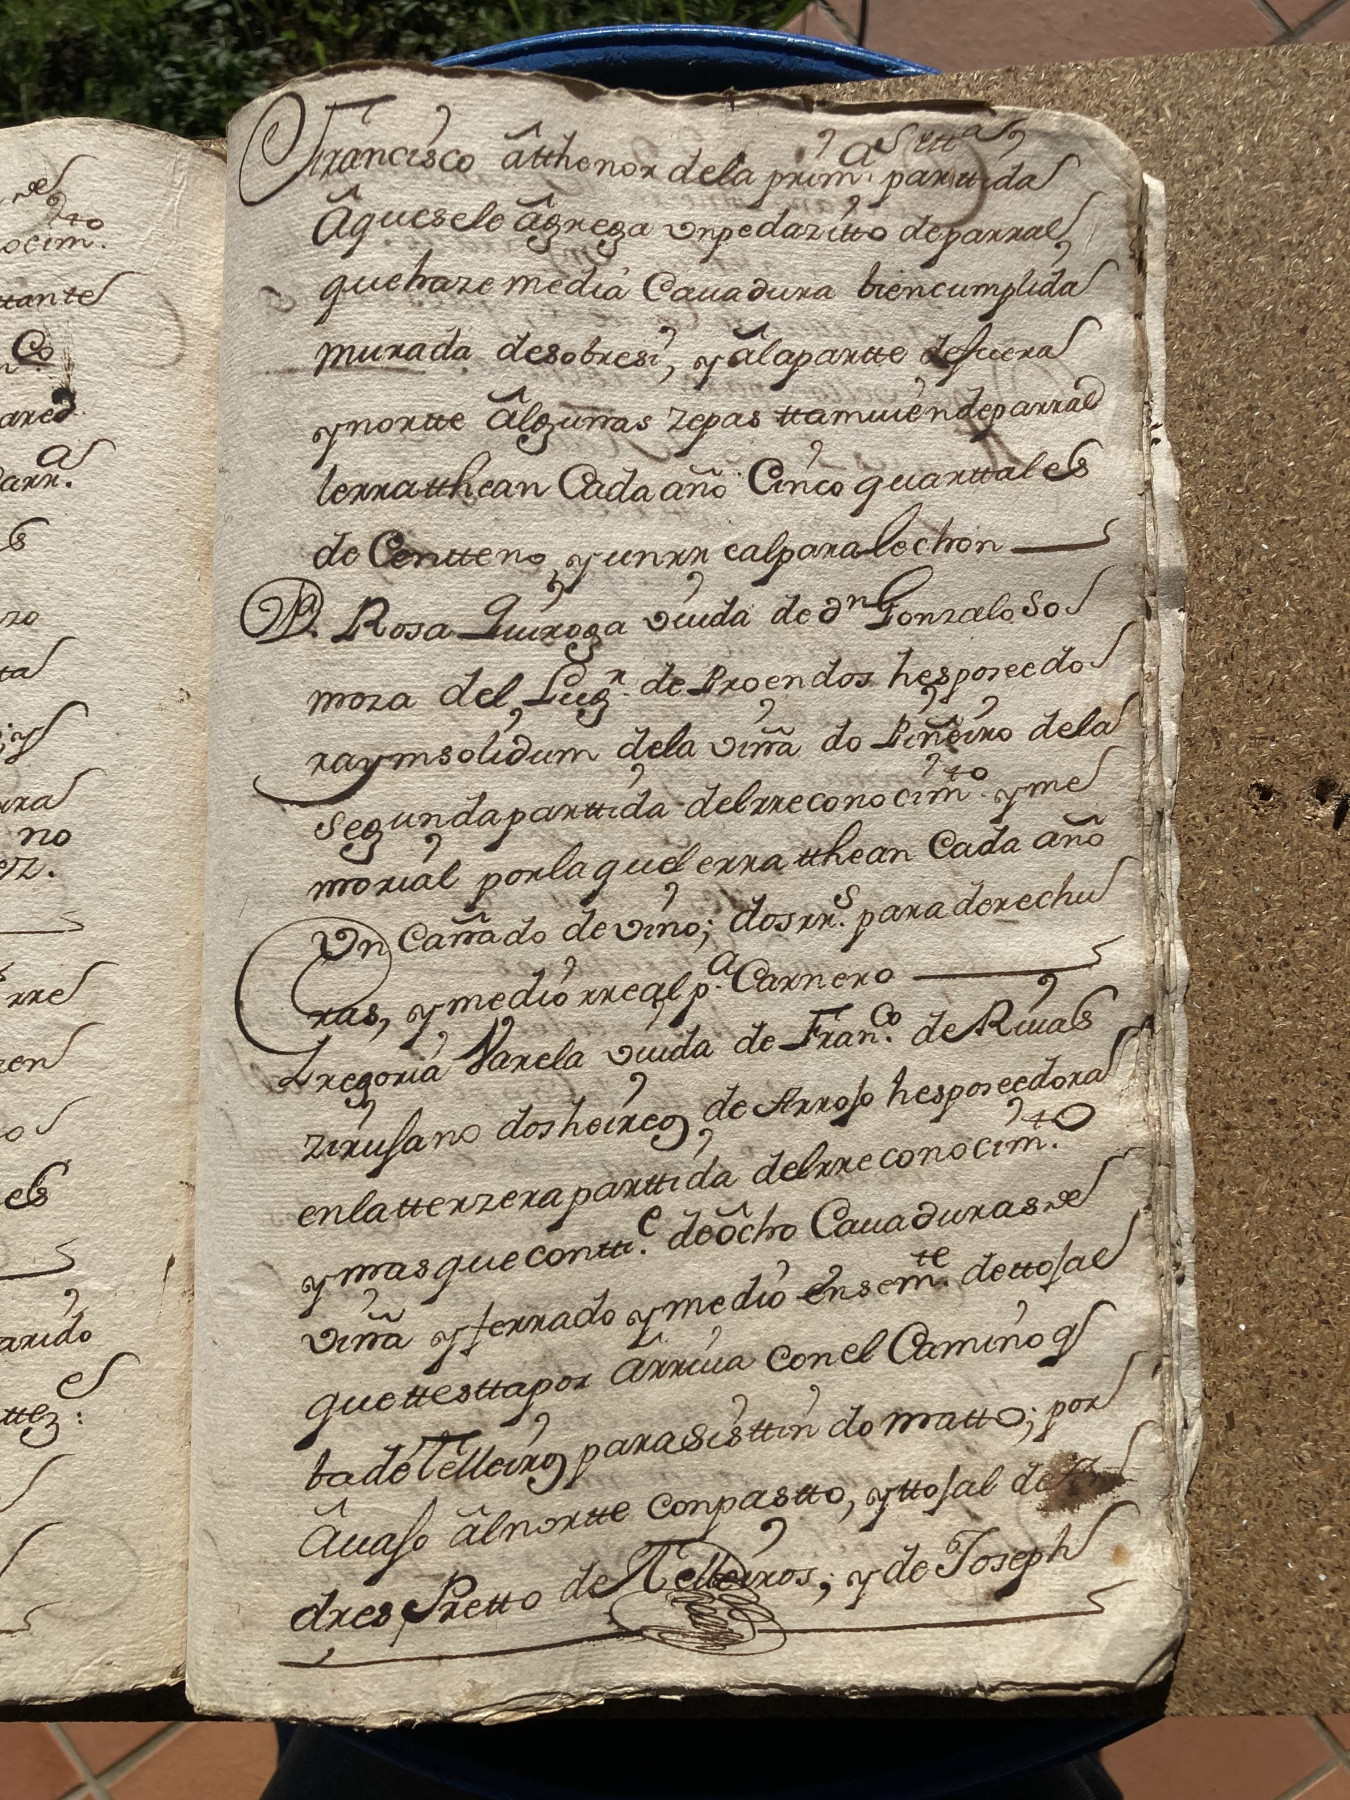 Francisco âtthenor dela prim.a partida
Âqueselo âgrega vnpedazitto deparral
quehaze media Cauadura biencumplida
murada desobresi, y âlapartte defuera
ynortte âlgunas zepas ttamuiendeparral
lerratthean Cada año Cinco quarttales
de Centteno, yunrr ealpara lechon
D.a Rosa Quiroga viuda de dn Gonzalo So
moza del Lugr. de Proendos hesposeedo
rayinsolidum dela viña do Piñeiro dela
segundaparttida delrreconocim.to yme
morial porlaquelerratthean Cada año
Vn Cañado de vino; dosrr.s para derechu
ras, ymedio rreal p.a Carnero
Gregoria Varela viuda de Fran.co de Riuas
zirusano dosheireg de Arrojo hesposeedora
enlatterzeraparttida delrreconocim.to
ymasqueconttt.e deôcho Cauadurasde
viña yferrado ymedio ensem.te dettojal
quettesttapor ârriua conel Camino q
badeTelleiro parasisttin do matto; por
Âuajo âlnortte conpastto, yttojal de
dres Pretto de Telleiros; yde Joseph
ocim.to
ttante
Co
ared
parr.a
zo
ta
no
ez.
rre
arido